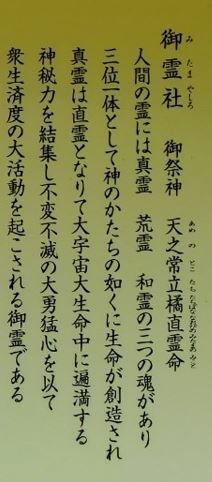 御霊社　御祭神　天之常立橘直霊命
人間の霊には真霊　荒霊　和霊の三つの魂があり
三位一体として神のかたちの如くに生命が創造され
真霊は直霊となりて大宇宙大生命中に遍満する
神秘力を結集し不変不滅の大勇猛心を以て
衆生済度の大活動を起こされる御霊である